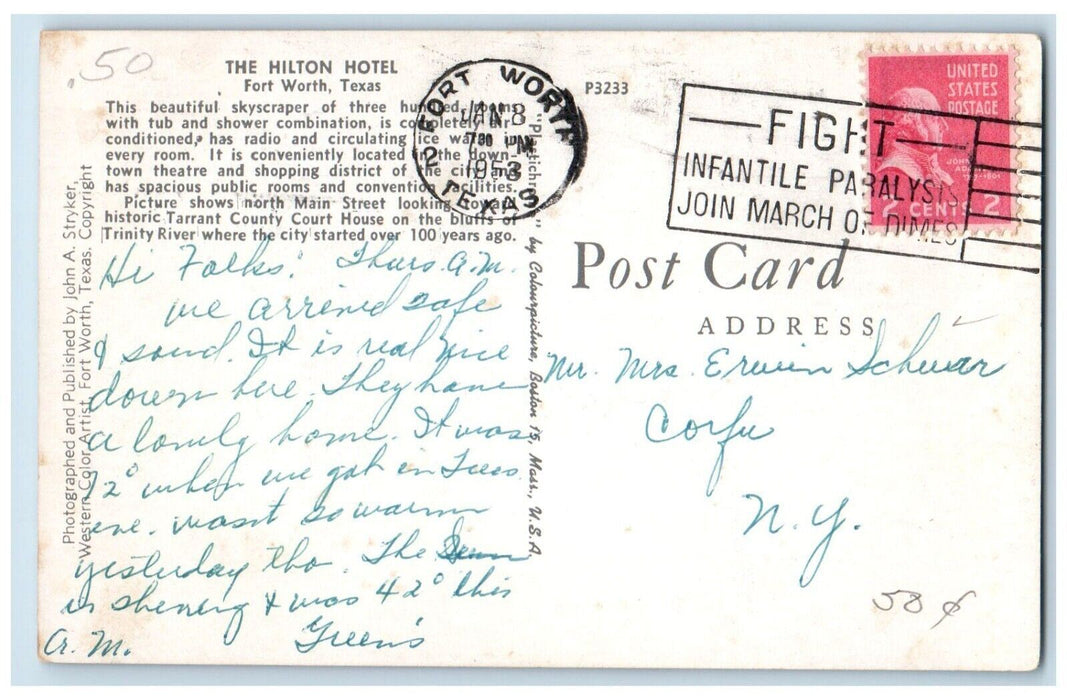 .50
THE HILTON HOTEL
Fort Worth, Texas
This beautiful skyscraper of three hundred rooms
with tub and shower combination, is completely air-
conditioned, has radio and circulating ice water in
every room. It is conveniently located in the down-
town theatre and shopping district of the city and
has spacious public rooms and convention facilities.
Picture shows north Main Street looking toward
historic Tarrant County Court House on the bluffs of
Trinity River where the city started over 100 years ago.
P3233
FORT WORTH
JAN 8
730 PM
1953
2
TEXAS
FIGHT
INFANTILE PARALYSIS
JOIN MARCH OF DIMES
UNITED
STATES
POSTAGE
JOHN
ADAMS
2 CENTS 2
Photographed and Published by John A. Stryker,
Western Color Artist, Fort Worth, Texas. Copyright
"Plastichrome" by Colourpicture, Boston 15, Mass., U.S.A.
Post Card
ADDRESS
Hi Folks: Thurs. A.M.
we arrived safe
& sound. It is real nice
down here. They have
a lovely home. It was
72° when we got in Tues.
eve. wasn't so warm
yesterday tho. The Sun
is shening & was 42° this
A.M. Green's
Mr. Mrs. Erwin Schwar
Corfu
N.Y.
50¢